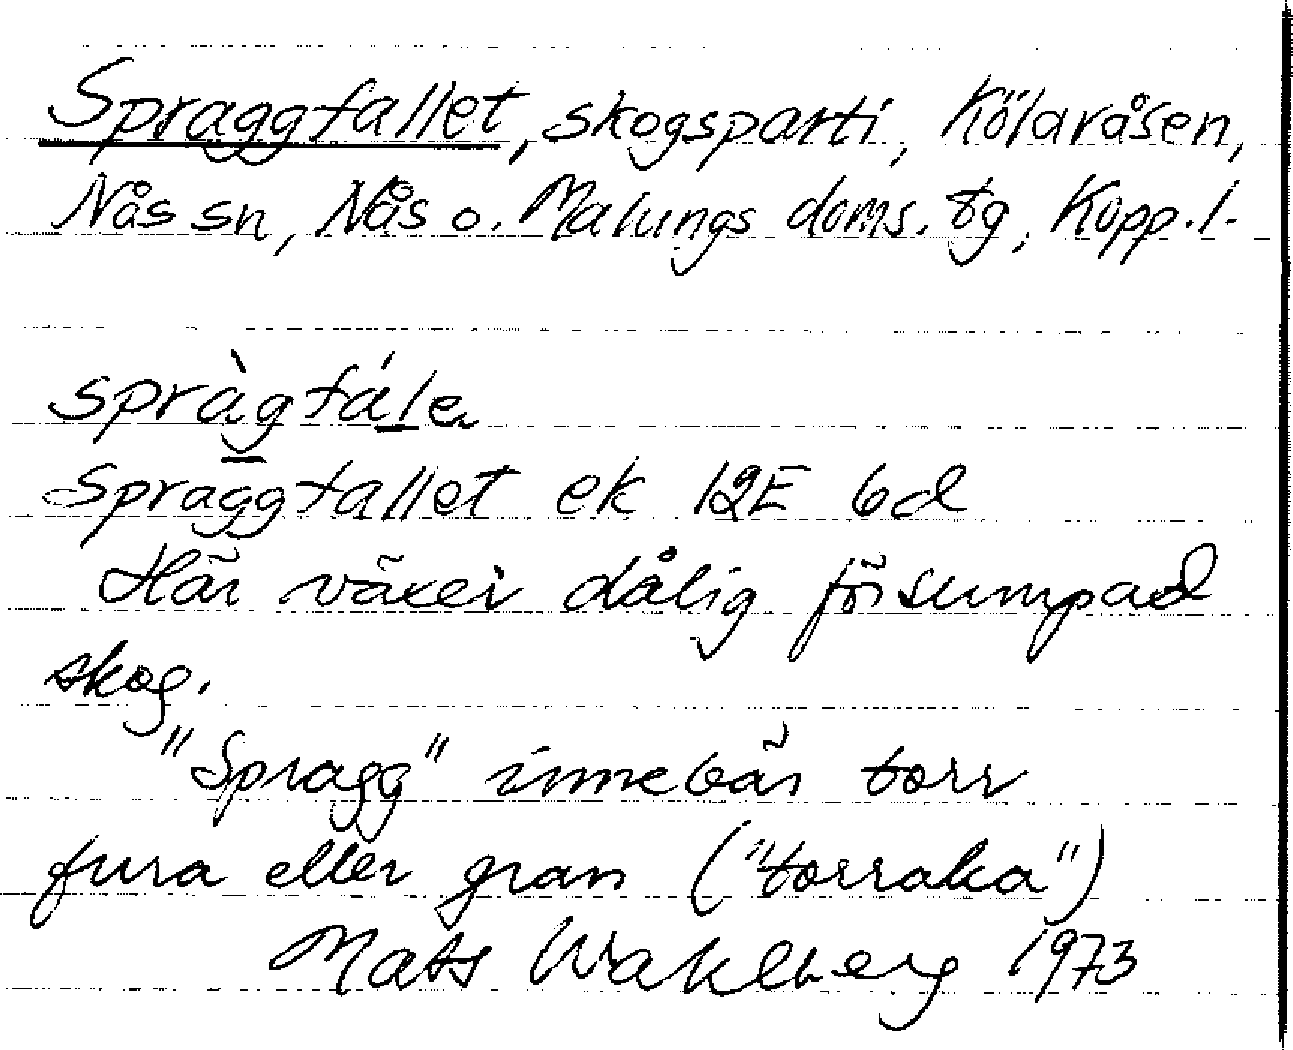 Spraggtallet, skogsparti, Kölaråsen,
Nås sn, Nås o. Malungs doms. tg, Kopp. l.
spràg tálę
Spraggtallet ek 12E 6d
Här växer dålig försumpad
skog.
"Spragg" innebär torr
fura eller gran ("torraka")
Mats Wahlberg 1973